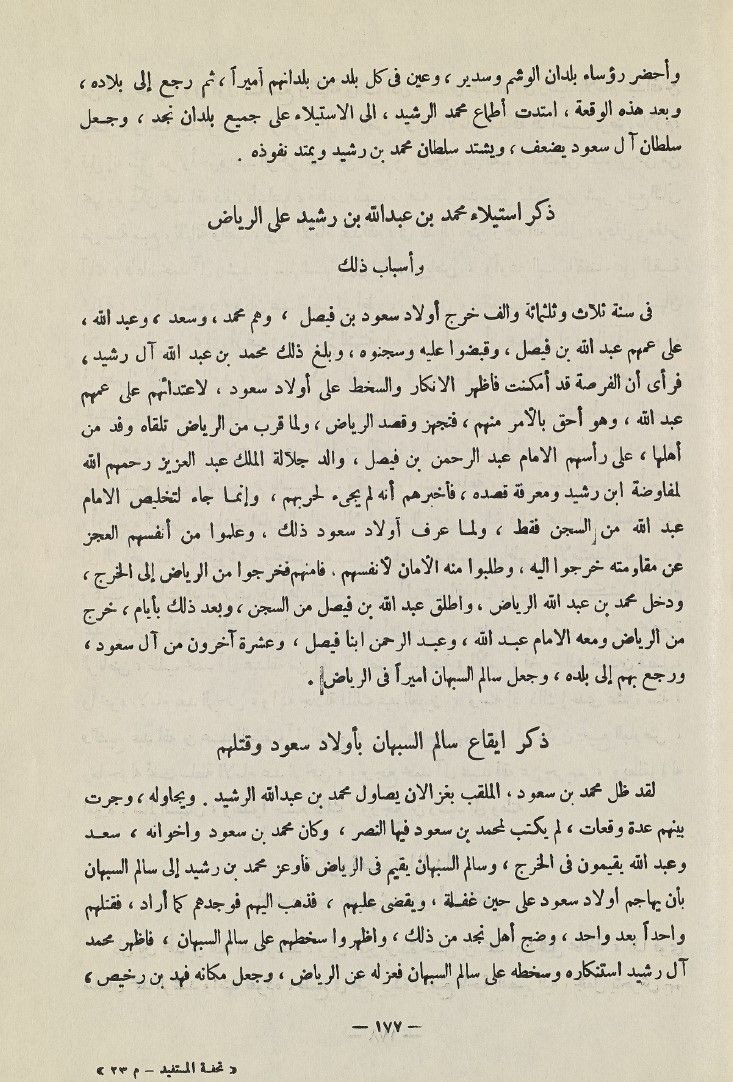 وأحضر رؤساء بلدان الوشم وسدير ، وعين فى كل بلد من بلدانهم أميراً ، ثم رجع إلى بلاده ،
وبعد هذه الوقعة ، امتدت أطماع محمد الرشيد ، الى الاستيلاء على جميع بلدان نجد ، وجعل
سلطان آل سعود يضعف ، ويشتد سلطان محمد بن رشيد ويمتد نفوذه .
ذكر استيلاء محمد بن عبدالله بن رشيد على الرياض
وأسباب ذلك
فى سنة ثلاث وثلثمائة والف خرج أولاد سعود بن فيصل ، وهم محمد ، وسعد ، وعبد الله ،
على عمهم عبد الله بن فيصل ، وقبضوا عليه وسجنوه ، وبلغ ذلك محمد بن عبد الله آل رشيد ،
فرأى أن الفرصة قد أمكنت فاظهر الانكار والسخط على أولاد سعود ، لاعتدائهم على عمهم
عبد الله ، وهو أحق بالأمر منهم ، فتجهز وقصد الرياض ، ولما قرب من الرياض تلقاه وفد من
أهلها ، على رأسهم الامام عبد الرحمن بن فيصل ، والد جلالة الملك عبد العزيز رحمهم الله
لمفاوضة ابن رشيد ومعرفة قصده ، فأخبرهم أنه لم يجىء لحربهم ، وإنما جاء لتخليص الامام
عبد الله من السجن فقط ، ولما عرف أولاد سعود ذلك ، وعلموا من أنفسهم العجز
عن مقاومته خرجوا اليه ، وطلبوا منه الأمان لأنفسهم . فامنهم فخرجوا من الرياض إلى الخرج ،
ودخل محمد بن عبد الله الرياض ، واطلق عبد الله بن فيصل من السجن ، وبعد ذلك بأيام ، خرج
من الرياض ومعه الامام عبد الله ، وعبد الرحمن ابنا فيصل ، وعشرة آخرون من آل سعود ،
ورجع بهم إلى بلده ، وجعل سالم السبهان اميراً فى الرياض .
ذكر ايقاع سالم السبهان بأولاد سعود وقتلهم
لقد ظل محمد بن سعود ، الملقب بغزالان يصاول محمد بن عبدالله الرشيد . ويحاوله ، وجرت
بينهم عدة وقعات ، لم يكتب لمحمد بن سعود فيها النصر ، وكان محمد بن سعود واخوانه ، سعد
وعبد الله يقيمون فى الخرج ، وسالم السبهان يقيم فى الرياض فأوعز محمد بن رشيد إلى سالم السبهان
بأن يهاجم أولاد سعود على حين غفلة ، ويقضى عليهم ، فذهب اليهم فوجدهم كما أراد ، فقتلهم
واحداً بعد واحد ، وضج أهل نجد من ذلك ، واظهروا سخطهم على سالم السبهان ، فاظهر محمد
آل رشيد استنكاره وسخطه على سالم السبهان فعزله عن الرياض ، وجعل مكانه فهد بن رخيص ،
— ١٧٧ —
« تحفة المستفيد - م ٢٣ »